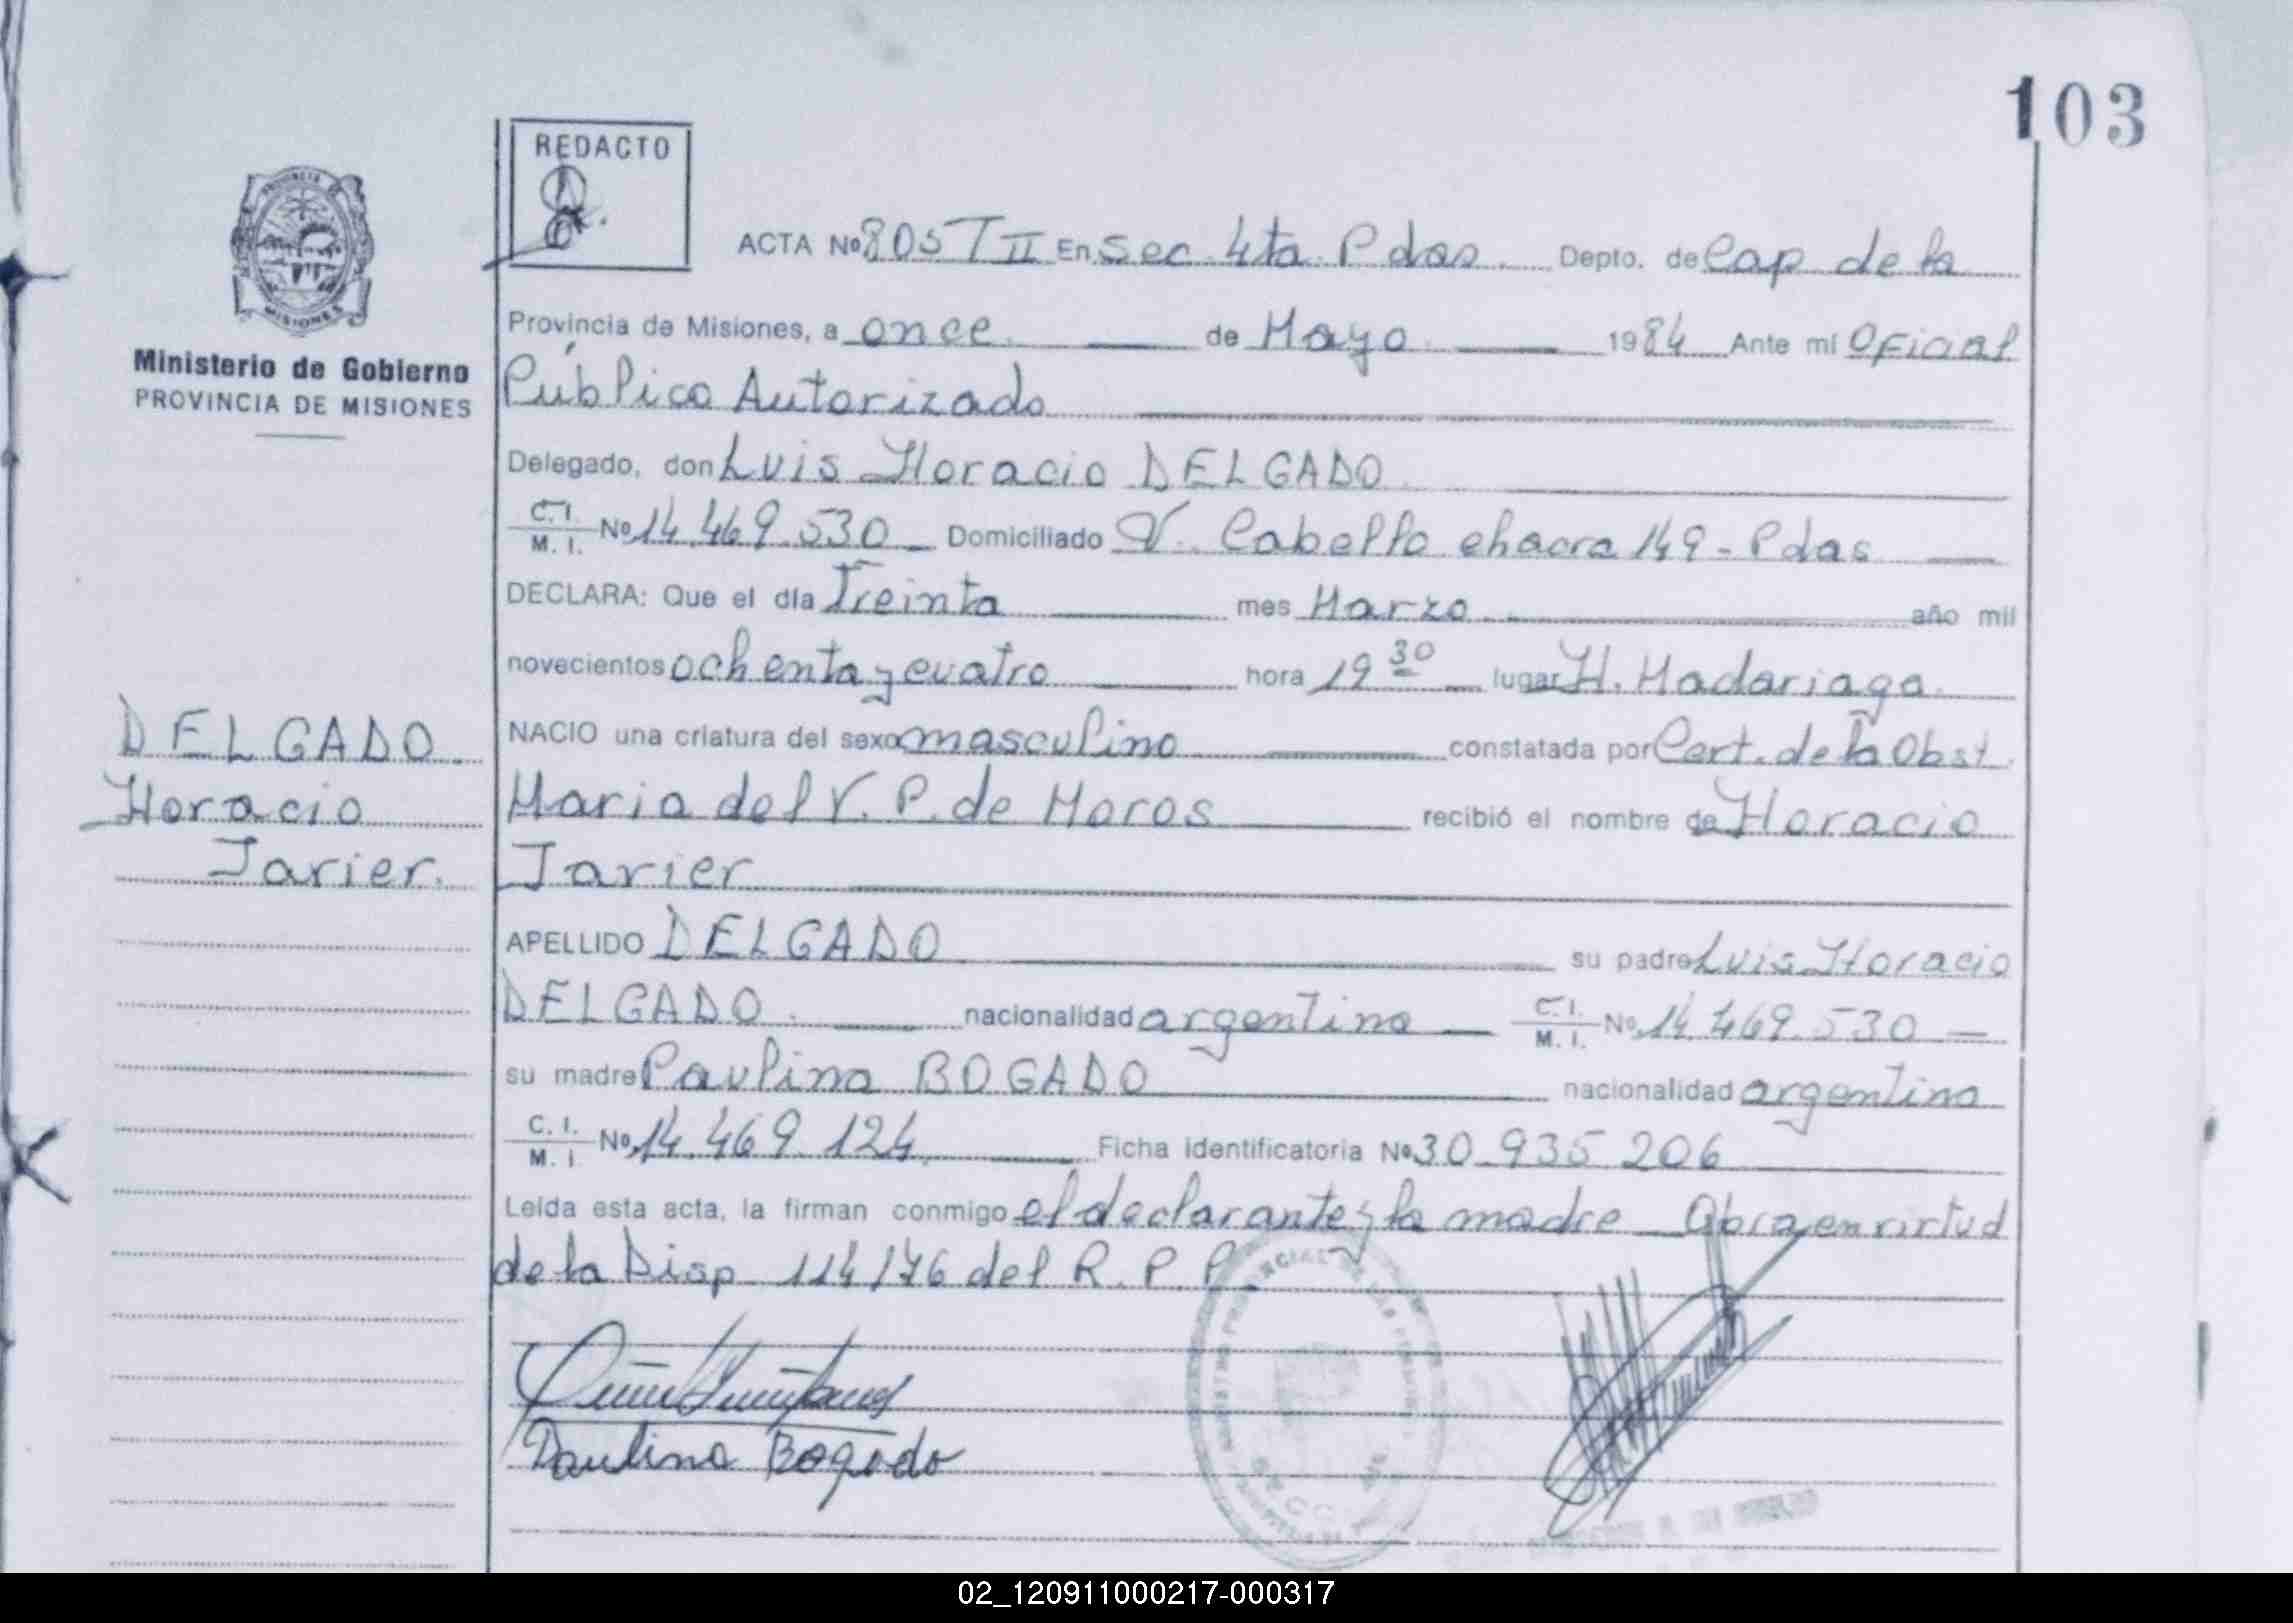 103
REDACTO
ACTA Nº 805 T II En Sec. 4ta. Pdas. Depto. de Cap de la
Provincia de Misiones, a once de Mayo 1984 Ante mí Oficial
Público Autorizado
Delegado, don Luis Horacio DELGADO
C. I. / M. I. Nº 14.469.530 Domiciliado V. Cabello chacra 149 - Pdas
DECLARA: Que el día Treinta mes Marzo año mil
novecientos ochenta y cuatro hora 19 30 lugar H. Madariaga
NACIO una criatura del sexo masculino constatada por Cert. de la Obst.
Maria del V. P. de Moros recibió el nombre de Horacio
Javier
APELLIDO DELGADO su padre Luis Horacio
DELGADO. nacionalidad argentina C. I. / M. I. Nº 14.469.530
su madre Paulina BOGADO nacionalidad argentina
C. I. / M. I. Nº 14.469.124 Ficha identificatoria Nº 30.935.206
Leída esta acta, la firman conmigo el declarante y la madre en virtud
de la Disp 114/76 del R. P. P.
Paulina Bogado
PROVINCIA DE
MISIONES
Ministerio de Gobierno
PROVINCIA DE MISIONES
DELGADO
Horacio
Javier.
02_120911000217-000317